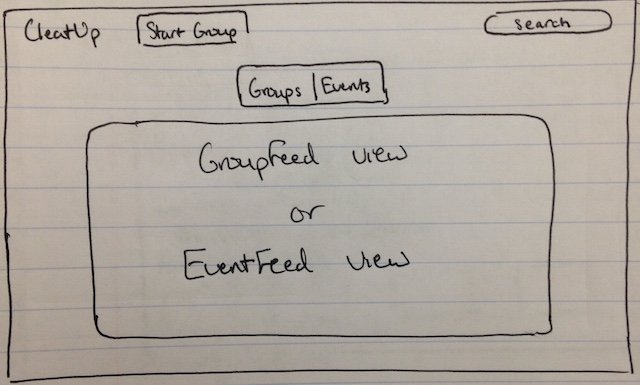 CleatUp Start Group search
Groups | Events
GroupFeed view
or
EventFeed view